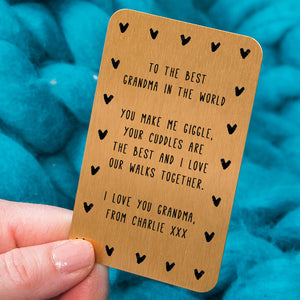 TO THE BEST
GRANDMA IN THE WORLD
YOU MAKE ME GIGGLE,
YOUR CUDDLES ARE
THE BEST AND I LOVE
OUR WALKS TOGETHER.
I LOVE YOU GRANDMA,
FROM CHARLIE XXX